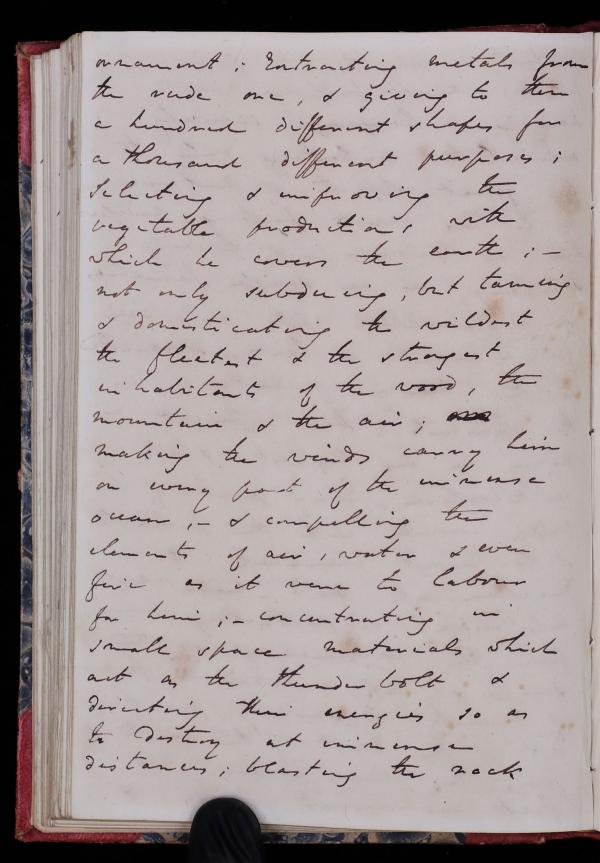 ornament; Extracting metals from
the rude ore, & giving to them
a hundred different shapes for
a thousand different purposes;
selecting & improving the
vegetable productions with
which he covers the earth; –
not only subduing, but taming
& domesticating the wildest
the fleetest & the strongest
inhabitants of the wood, the
mountain & the air;
making the winds carry him
on every part of the immense
ocean; – & compelling the
elements of air, water & even
fire as it were to labour
for him; – concentrating in
small space materials which
act as the thunderbolt &
directing their energies so as
to destroy at immense
distances; blasting the rock